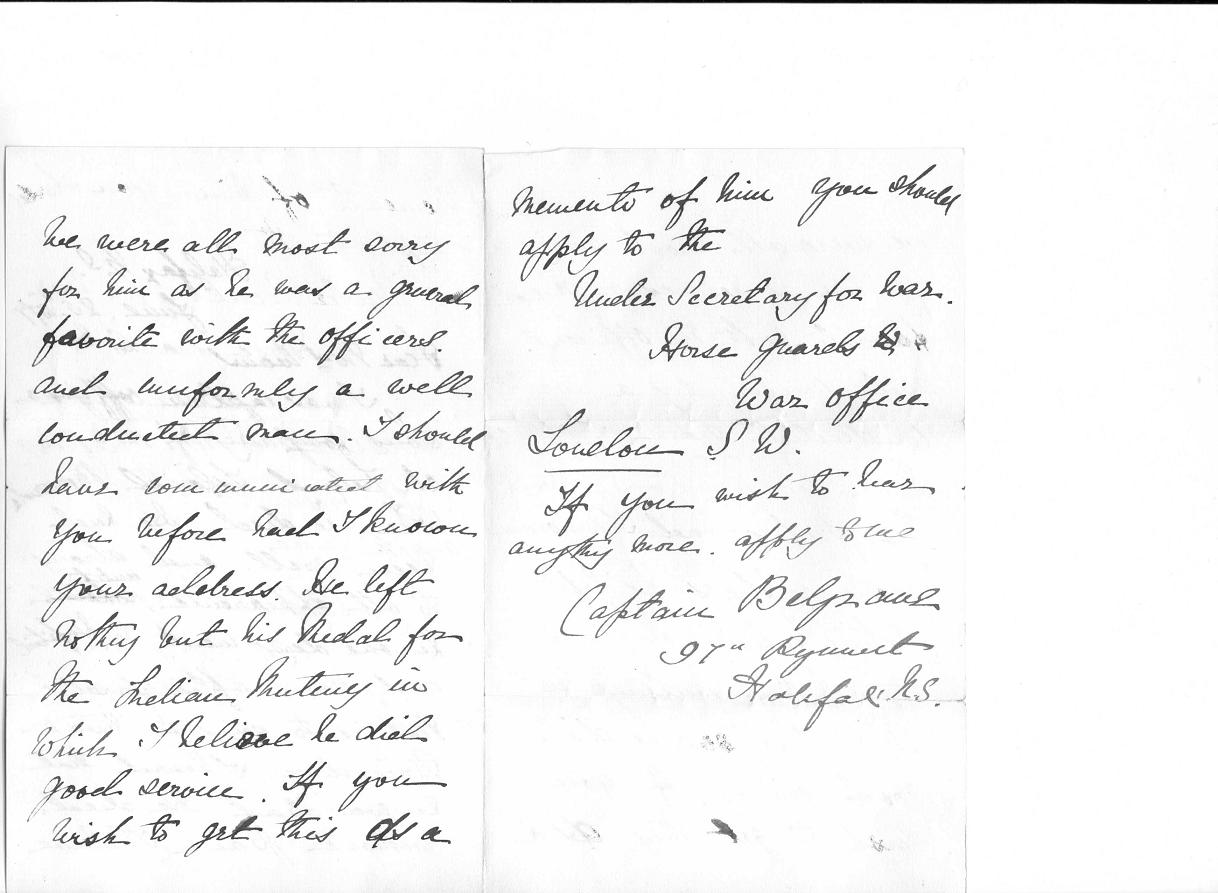 We were all most sorry
for him as he was a general
favorite with the officers.
and uniformly a well
conducted man. I should
have communicated with
you before had I known
your address. He left
nothing but his Medal for
the Indian Mutiny in
which I believe he did
good service. If you
wish to get this as a
memento of him you should
apply to the
Under Secretary for War.
Horse Guards
War Office
London S. W.
If you wish to hear
anything more. apply to me
Captain Belgrave
97th Regiment
Halifax. N.S.